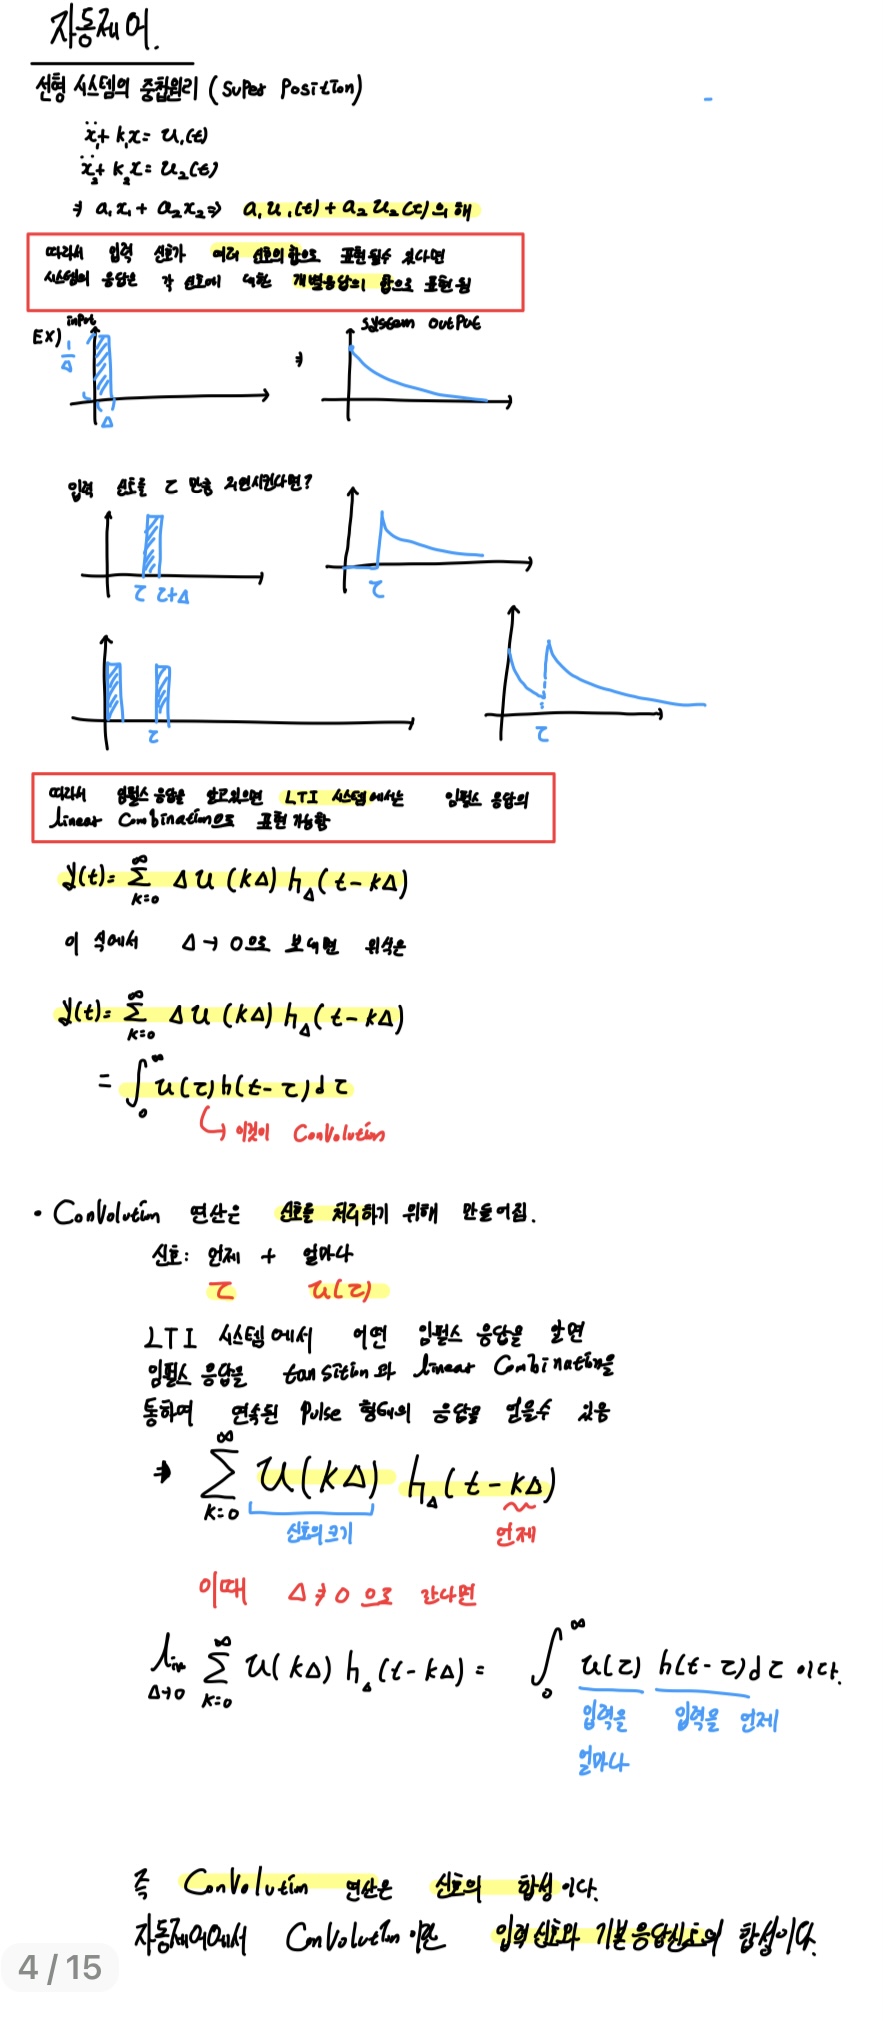 자동제어.
선형 시스템의 중첩원리 (Super Position)
ẍ₁+ k₁x = u₁(t)
ẍ₂+ k₂x = u₂(t)
⇒ a₁x₁ + a₂x₂ ⇒ a₁u₁(t) + a₂u₂(t)의 해
따라서 입력 신호가 여러 신호의 합으로 표현될수 있다면
시스템의 응답은 각 신호에 대한 개별응답의 합으로 표현됨
EX) input
1/Δ
Δ
⇒
system output
입력 신호를 τ 만큼 지연시킨다면?
τ τ+Δ
τ
τ
τ
따라서 임펄스 응답을 알고있으면 LTI 시스템에서는 임펄스 응답의
linear Combination으로 표현 가능함
y(t)= ∑_{k=0}^{∞} Δ u (kΔ) h_Δ(t-kΔ)
이 식에서 Δ→0으로 보내면 위식은
y(t)= ∑_{k=0}^{∞} Δ u (kΔ) h_Δ(t-kΔ)
= ∫_0^∞ u(τ)h(t-τ)dτ
이것이 Convolution
• Convolution 연산은 신호를 처리하기 위해 만들어짐.
신호: 언제 + 얼마나
τ u(τ)
LTI 시스템에서 어떤 임펄스 응답을 알면
임펄스 응답을 tansition과 linear Combination을
통하여 연속된 Pulse 형태의 응답을 얻을수 있음
⇒ ∑_{k=0}^{∞} u(kΔ) h_Δ(t-kΔ)
신호의 크기 언제
이때 Δ⇒0 으로 간다면
lim_{Δ→0} ∑_{k=0}^{∞} u(kΔ) h_Δ(t-kΔ) = ∫_0^∞ u(τ) h(t-τ)dτ 이다.
입력을 입력을 언제
얼마나
즉 Convolution 연산은 신호의 합성이다.
자동제어에서 Convolution이란 입력신호와 기본응답신호의 합성이다.
4 / 15